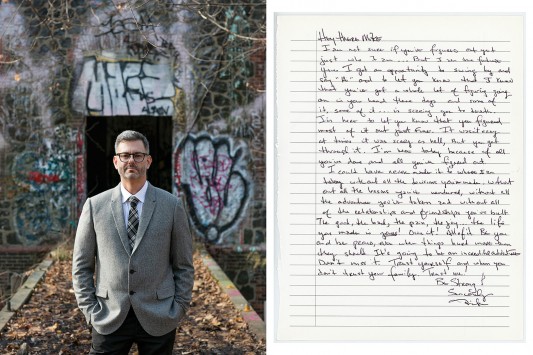 Hey There Mike
I am not sure if you've figured out yet
just who I am... But I'm the future
you. I got an opportunity to swing by and
say "Hi" and to let you know that I know
that you've got a whole lot of figuring going
on in your head these days and some of
it, some of it... is scaring you to death.
I'm here to let you know that you figured
most of it out just fine. It wasn't easy
at times it was scary as hell, but you get
through it. I'm here today because of all
you've done and all you've figured out.
I could have never made it to where I am
today without all the you made. without
all the lessons you've endured, without all
the adventures you've taken and without all
of the relationships and friendships you've built
The good, the bad, the pain, the joy - the life
you made is yours! Own it! All of it. Be you
and be proud, even when things hurt more than
they should. It's going to be an incredible
Don't miss it. Trust yourself and when you
don't trust your family. Trust me.
Be Strong!
Sincerely